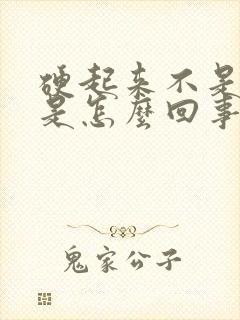 硬起来不是
是怎麼回事
鬼家公子